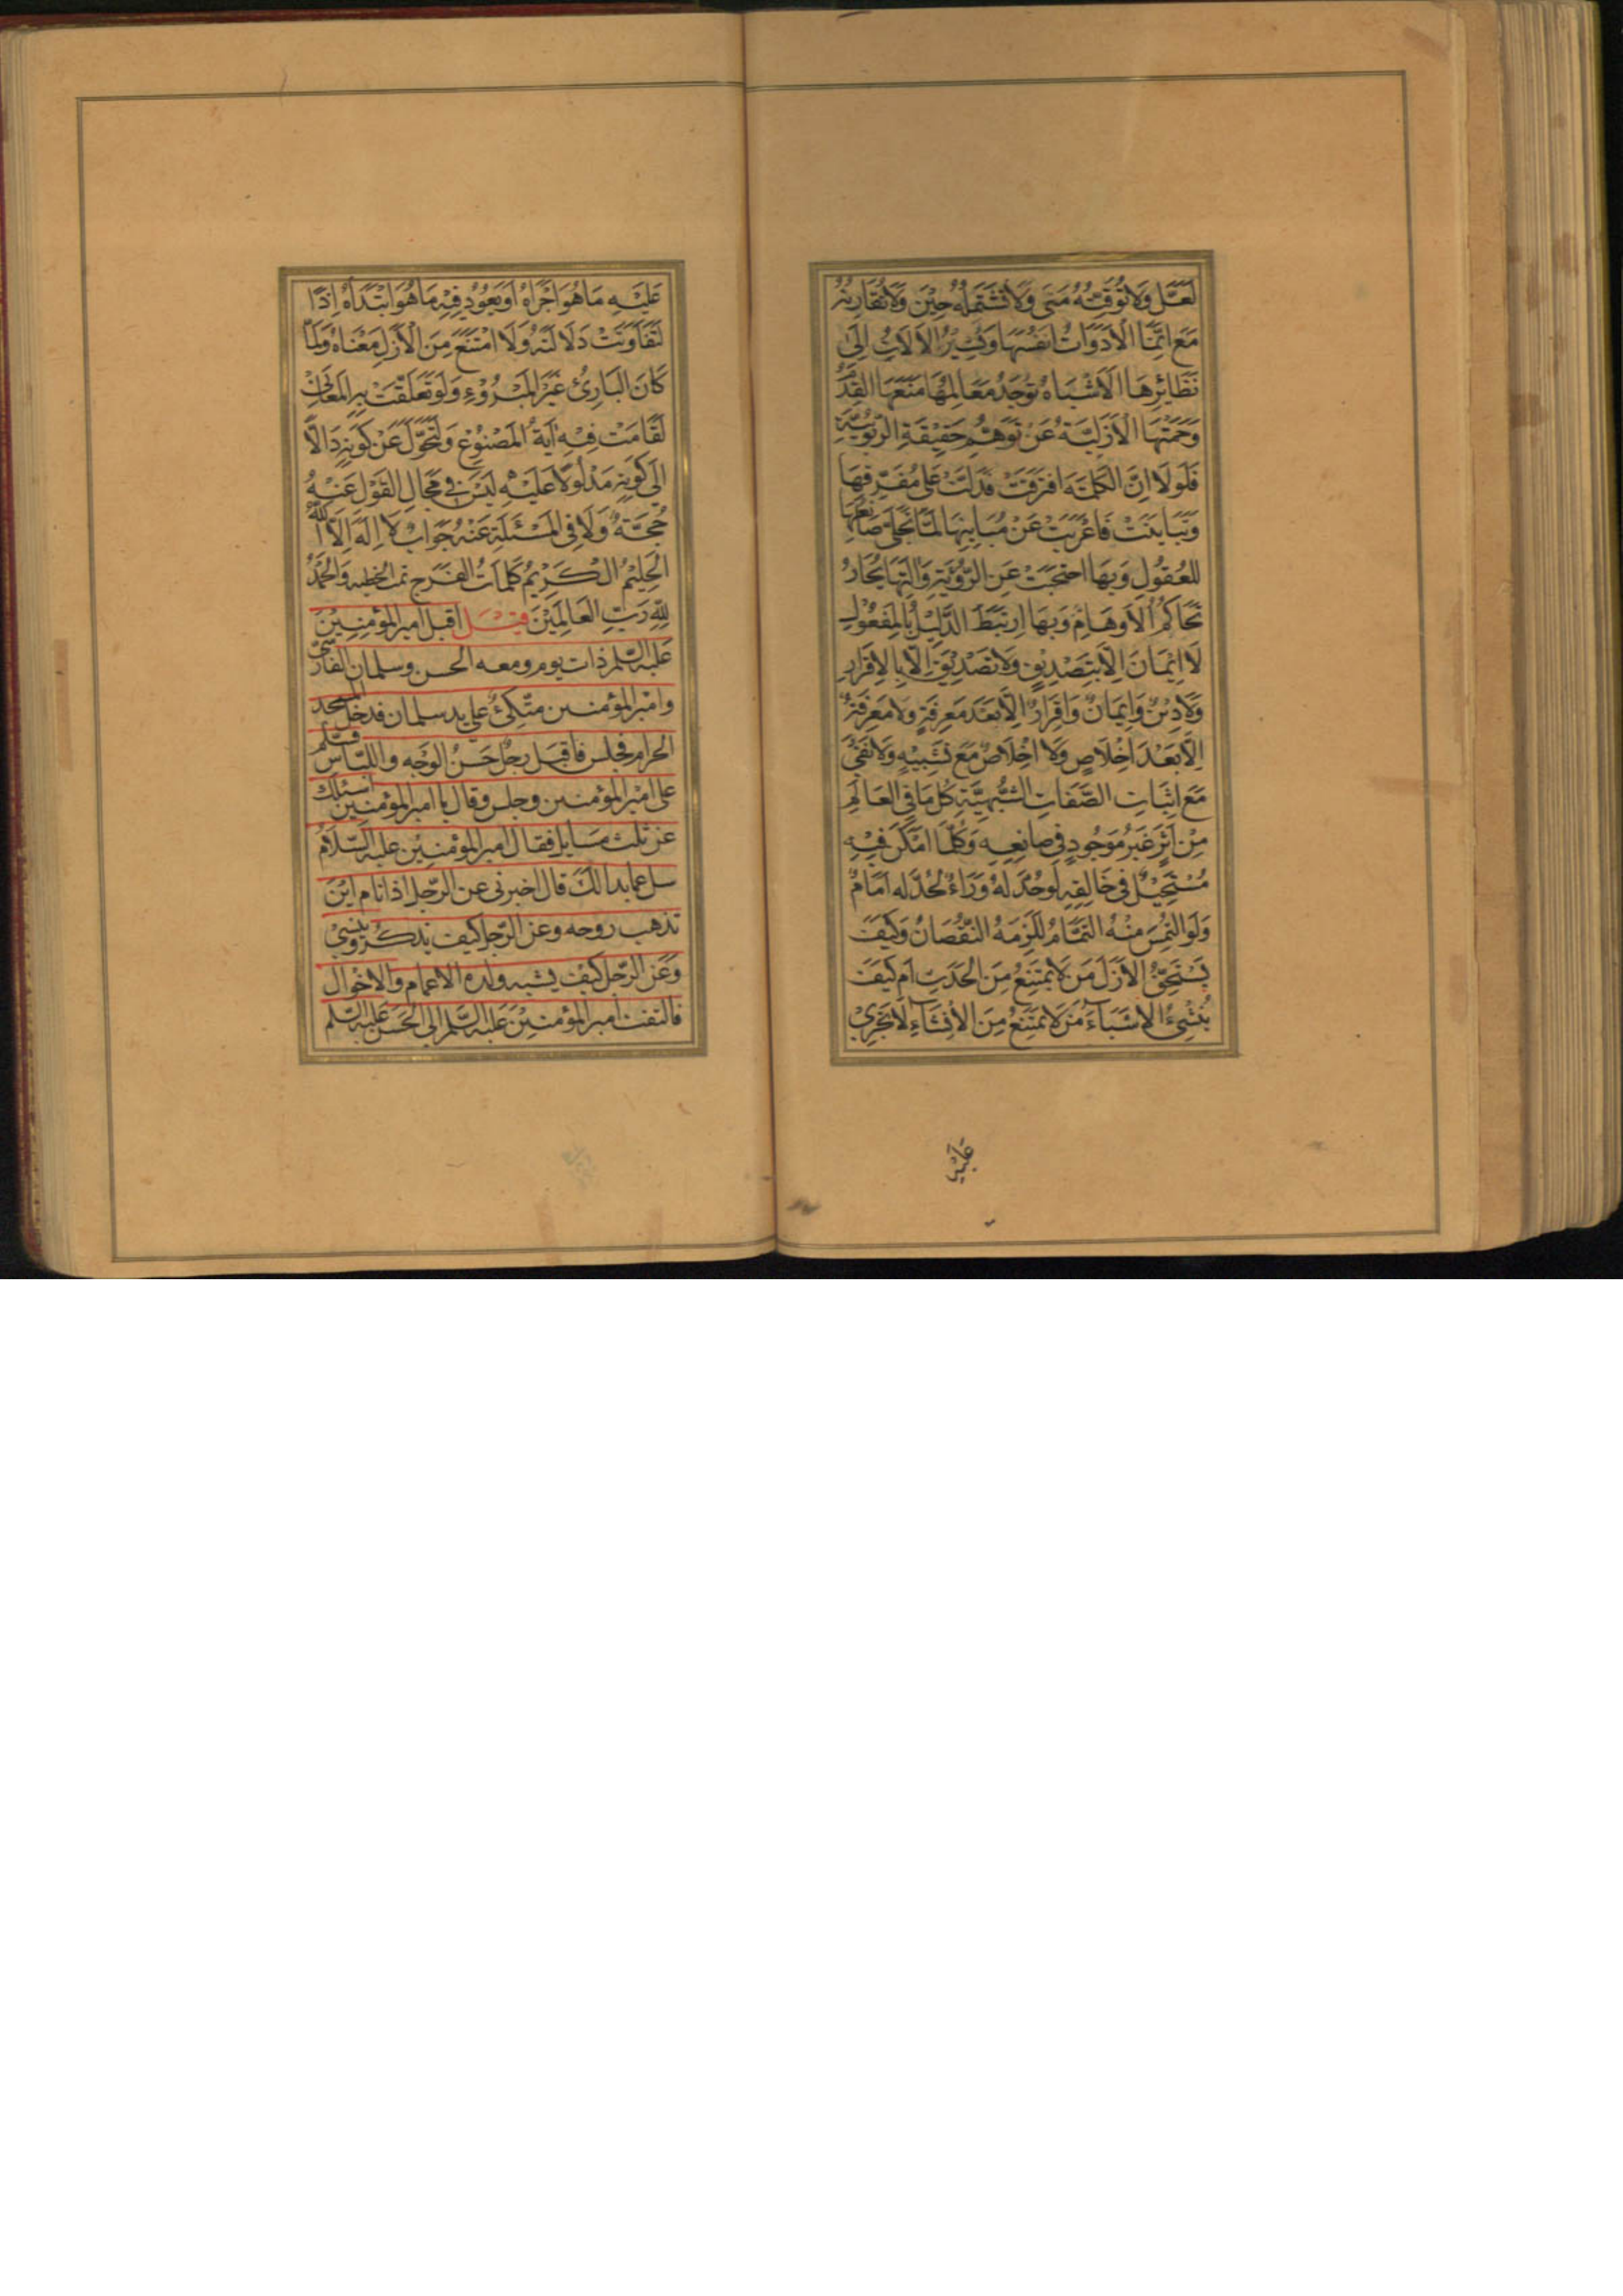 لَعَلَّ وَلَا تُوَقِّتُهُ مَتَى وَلَا تَشْتَمِلُهُ حِيْنَ وَلَا تُقَارِنُهُ
مَعَ اِنَّمَا الْاَدَوَاتُ اَنْفُسَهَا وَتُشِيْرُ الْاَلَاتُ اِلَى
نَظَائِرِهَا الْاَشْبَاهُ تُوجَدُ مَعَالِمُهَا مَنَعَهَا القِدَمُ
وَحَمَتْهَا الْاَزَلِيَّةُ عَنْ تَوَهُّمِ حَقِيْقَةِ الرُّبُوبِيَّةِ
فَلَوْلَا اِنَّ الْكَلِمَةَ افْتَرَقَتْ فَدَلَّتْ عَلَى مُفَرِّقِهَا
وَتَبَايَنَتْ فَاَعْرَبَتْ عَنْ مُبَايِنِهَا لَمَا تَجَلَّى صَانِعُهَا
لِلعُقُولِ وَبِهَا احْتَجَبَ عَنِ الرُّؤْيَةِ وَاِلَيْهَا يُحَارُ
تَحَاكُمُ الْاَوهَامِ وَبِهَا ارْتَبَطَ الدَّلِيْلُ بِالْمَفْعُوْلِ
لَا اِيْمَانَ اِلَّا بِتَصْدِيْقٍ وَلَا تَصْدِيْقَ اِلَّا بِالْاِقْرَارِ
وَلَا دِيْنٌ وَاِيْمَانٌ وَاِقْرَارٌ اِلَّا بَعْدَ مَعْرِفَةٍ وَلَا مَعْرِفَةٌ
اِلَّا بَعْدَ اِخْلَاصٍ وَلَا اِخْلَاصٌ مَعَ تَشْبِيْهٍ وَلَا نَفْيٌ
مَعَ اِثْبَاتِ الصِّفَاتِ التَّشْبِيهِيَّةِ كُلُّ مَا فِي العَالَمِ
مِنْ اَثَرٍ غَيْرُ مَوْجُودٍ فِي صَانِعِهِ وَكُلَّمَا اَمْكَنَ فِيْهِ
مُسْتَحِيْلٌ فِي خَالِقِهِ لَوحُدَّ لَهُ وَرَاءٌ لَحُدَّ لَه اَمَامٌ
وَلَوِ الْتُمِسَ مِنْهُ التَّمَامُ لَلَزِمَهُ النُّقْصَانُ وَكَيْفَ
يَسْتَحِقُّ الْاَزَلَ مَنْ لَا يَمْتَنِعُ مِنَ الحَدَثِ اَم كَيْفَ
يُنْشِئُ الْاَشْيَاءَ مَنْ لَا يَمْتَنِعُ مِنَ الْاِنْشَاءِ لَا يَجْرِيْ
عَلَيْهِ
عَلَيْهِ مَا هُوَ اَجْرَاهُ اَوْ يَعُوْدُ فِيْهِ مَا هُوَ ابْتَدَاَهُ اِذًا
لَتَفَاوَتَتْ دَلَالَتُهُ وَلَا امْتَنَعَ مِنَ الْاَزَلِ مَعْنَاهُ وَلَمَّا
كَانَ البَارِئُ غَيْرَ المَبْرُوْءِ وَلَوْ تَعَلَّقَتْ بِهِ المَعَانِيْ
لَقَامَتْ فِيْهِ اٰيَةُ المَصْنُوْعِ وَلَتَحَوَّلَ عَنْ كَوْنِهِ دَالًّا
اِلَى كَوْنِهِ مَدْلُولًا عَلَيْهِ لَيْسَ فِي مَجَالِ القَوْلِ عَنْهُ
حُجَّةٌ وَلَا فِي المَسْئَلَةِ عَنْهُ جَوَابٌ لَا اِلَهَ اِلَّا اللّٰهُ
الحَلِيْمُ الْكَرِيْمُ كَلِمَاتُ الفَرَجِ تمت الخطبه وَالحَمْدُ
لِلّٰهِ رَبِّ العَالَمِيْنَ قِيْلَ اقبل امير المؤمِنِيْنَ
عليه السّلم ذات يوم ومعه الحسن وسلمان الفارسى
وامير المؤمنين متّكئ على يد سلمان فدخل المسجد
الحرام فجلس فاقبل رجل حَسَنُ الوَجْه واللّباس فسلّم
على امير المؤمنين وجلس وقال يا امير المؤمنين اسئلك
عن ثلث مسايل فقال امير المؤمنين عليه السّلام
سل عما بدا لك قال اخبرنى عن الرّجل اذا نام اين
تذهب روحه وعن الرّجل كيف يذكر وينسى
وعن الرّجل كيف يشبه ولده الاعمام والاخوال
فالتفت امير المؤمنين عليه السّلم الى الحَسَن عليه السّلم